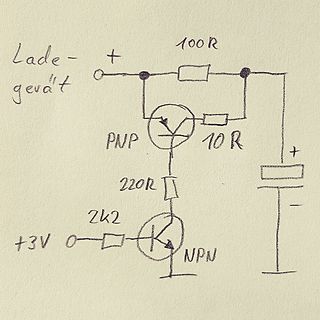 Lade-
gerät
+
100R
PNP
10R
220R
+
−
2k2
+3V
NPN